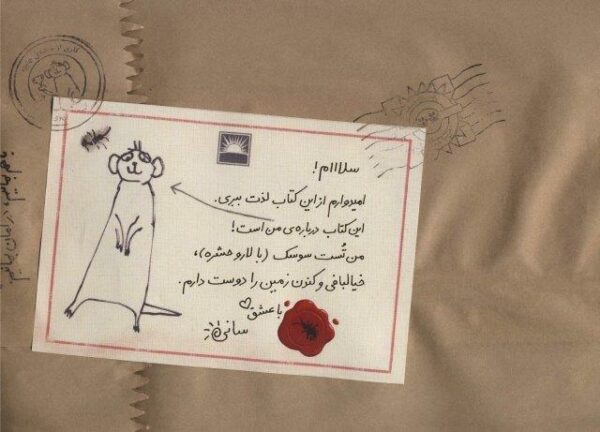 سلااام!
امیدوارم از این کتاب لذت ببری.
این کتاب درباره‌ی من است!
من تُست سوسک (با لارو حشره)،
خیالبافی و کندن زمین را دوست دارم.
با عشق
سانی